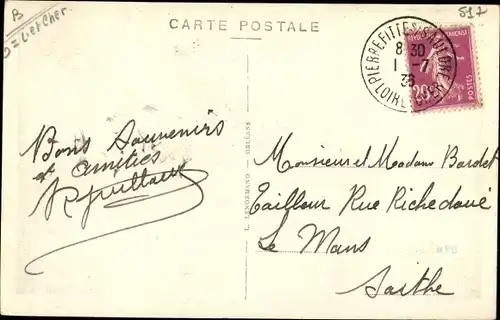 B
D = Loir et Cher.
CARTE POSTALE
517
PIERREFITTE S/SAULDRE
8 30
1 - 7
36
LOIR-ET-CHER
RÉPUBLIQUE FRANÇAISE
20c
POSTES
Bons Souvenirs
et amitiés
L. LENORMAND - ORLÉANS
Monsieur et Madame Bardet
Tailleur Rue Richedoué
Le Mans
Sarthe